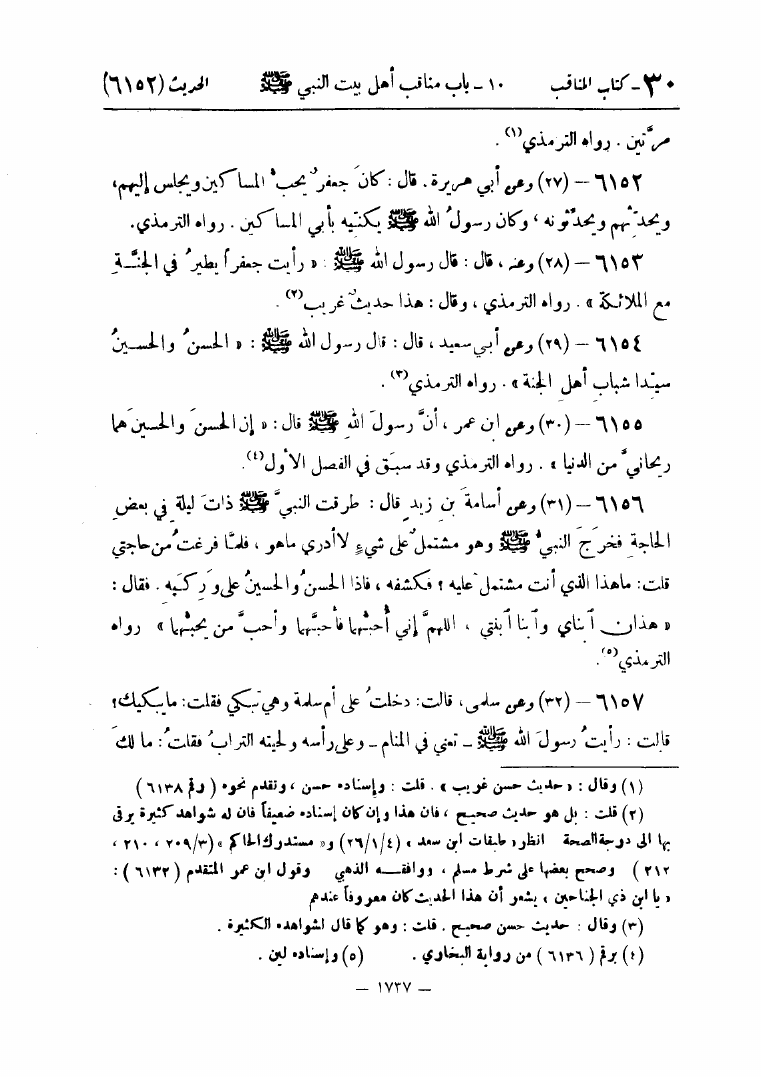 ٣٠ - كتاب المناقب ١٠ - باب مناقب أهل بيت النبي ﷺ الحديث (٦١٥٢)
مرَّتين . رواه الترمذي(١) .
٦١٥٢ – (٢٧) وعن أبي هريرة . قال : كانَ جعفرٌ يحبُّ المساكين ويجلس إليهم،
ويحدِّثهم ويحدِّثونه ، وكان رسولُ الله ﷺ يكنّيه بأبي المساكين . رواه الترمذي.
٦١٥٣ – (٢٨) وعنه ، قال : قال رسول الله ﷺ : « رأيت جعفراً يطيرُ في الجنَّـةِ
مع الملائكة » . رواه الترمذي ، وقال : هذا حديثٌ غريب(٢) .
٦١٥٤ – (٢٩) وعن أبي سعيد ، قال : قال رسول الله ﷺ : « الحسنُ والحسـينُ
سيّدا شبابِ أهلِ الجنة » . رواه الترمذي(٣) .
٦١٥٥ – (٣٠) وعن ابن عمر ، أنَّ رسولَ اللهِ ﷺ قال : « إن الحسنَ والحسينَ هما
ريحانيَّ من الدنيا » . رواه الترمذي وقد سبَق في الفصل الأول(٤).
٦١٥٦ – (٣١) وعن أسامةَ بنِ زيدٍ قال : طرقت النبيَّ ﷺ ذاتَ ليلةٍ في بعضِ
الحاجةِ فخرَجَ النبيُّ ﷺ وهو مشتملٌ على شيءٍ لا أدري ماهو ، فلمَّا فرغتُ من حاجتي
قلت : ماهذا الذي أنت مشتملٌ عليه ؟ فكشفه ، فاذا الحسنُ والحسينُ على وَرِكَيه . فقال :
« هذان ابناي وابنا ابنتي ، اللهمَّ إني أُحبُّهما فأحبَّهما وأحبَّ من يحبُّهما » رواه
الترمذي(٥).
٦١٥٧ – (٣٢) وعن سلمى، قالت: دخلتُ على أم سلمة وهي تبكي فقلت: مايبكيك؟
قالت : رأيتُ رسولَ الله ﷺ - تعني في المنام - وعلى رأسه ولحيته الترابُ فقلتُ : ما لكَ
(١) وقال : « حديث حسن غريب » . قلت : وإسناده حسن ، وتقدم نحوه ( رقم ٦١٣٨ )
(٢) قلت : بل هو حديث صحيح ، فان هذا وإن كان إسناده ضعيفاً فان له شواهد كثيرة يرقى
بها الى درجة الصحة انظر « طبقات ابن سعد » (٢٦/١/٤) و« مستدرك الحاكم » (٢٠٩/٣ ، ٢١٠ ،
٢١٢ ) وصحح بعضها على شرط مسلم ، ووافقـه الذهبي وقول ابن عمر المتقدم ( ٦١٣٢ ) :
« يا ابن ذي الجناحين » يشعر أن هذا الحديث كان معروفاً عندهم
(٣) وقال : حديث حسن صحيح . قلت : وهو كما قال لشواهده الكثيرة .
(٤) برقم ( ٦١٣٦ ) من رواية البخاري . (٥) وإسناده لين .
— ١٧٣٧ —